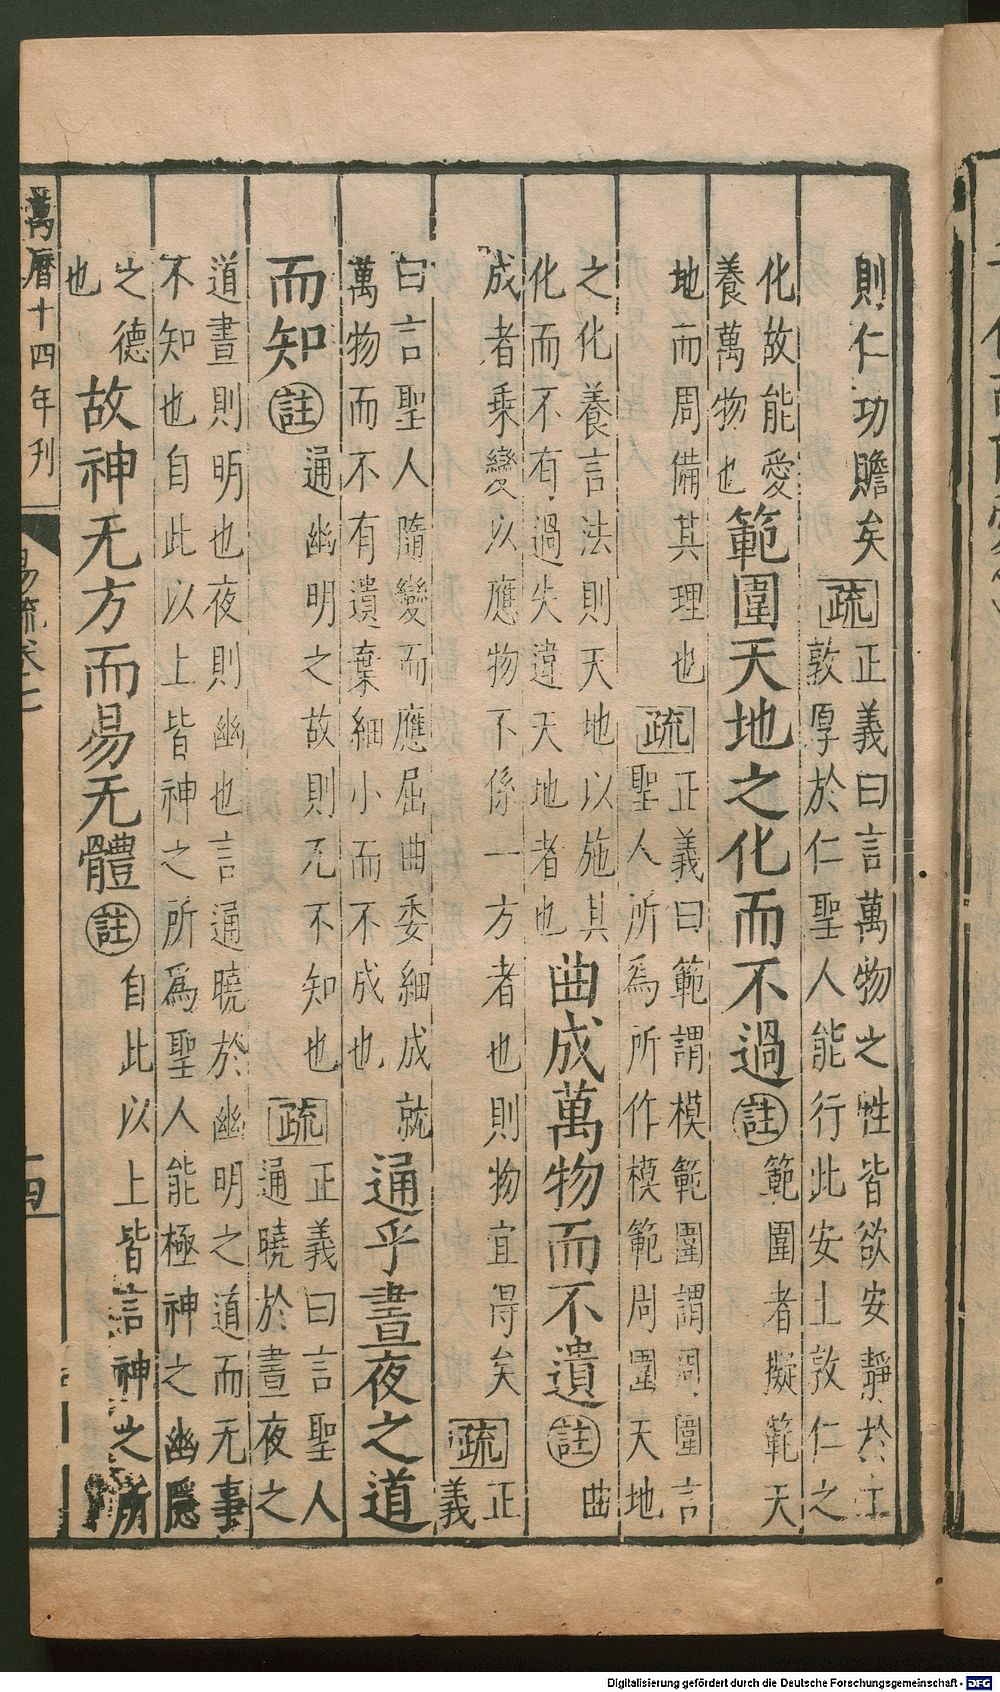 則仁功贍矣疏正義曰言萬物之性皆欲安靜於土
敦厚於仁聖人能行此安土敦仁之
化故能愛
養萬物也範圍天地之化而不過註範圍者擬範天
地而周備其理也疏正義曰範謂模範圍謂周圍言
聖人所為所作模範周圍天地
之化養言法則天地以施其
化而不有過失違天地者也曲成萬物而不遺註曲
成者乘變以應物不係一方者也則物宜得矣疏正
義
曰言聖人隨變而應屈曲委細成就
萬物而不有遺棄細小而不成也通乎晝夜之道
而知註通幽明之故則无不知也疏正義曰言聖人
通曉於晝夜之
道晝則明也夜則幽也言通曉於幽明之道而无事
不知也自此以上皆神之所爲聖人能極神之幽隱
之德
也故神无方而易无體註自此以上皆言神之所
萬曆十四年刊
易疏卷
Digitalisierung gefördert durch die Deutsche Forschungsgemeinschaft - DFG